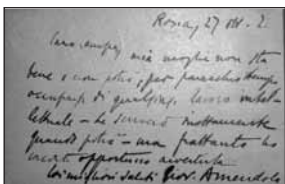 Roma, 27 Ott.
Caro amico, mia moglie non sta
bene e non potrà, per parecchio tempo
occuparsi di qualsiasi lavoro intel-
lettuale - Le scriverò
quando potrà - ma frattanto ho
creduto opportuno avvertirla
Coi migliori saluti Giov. Amendola